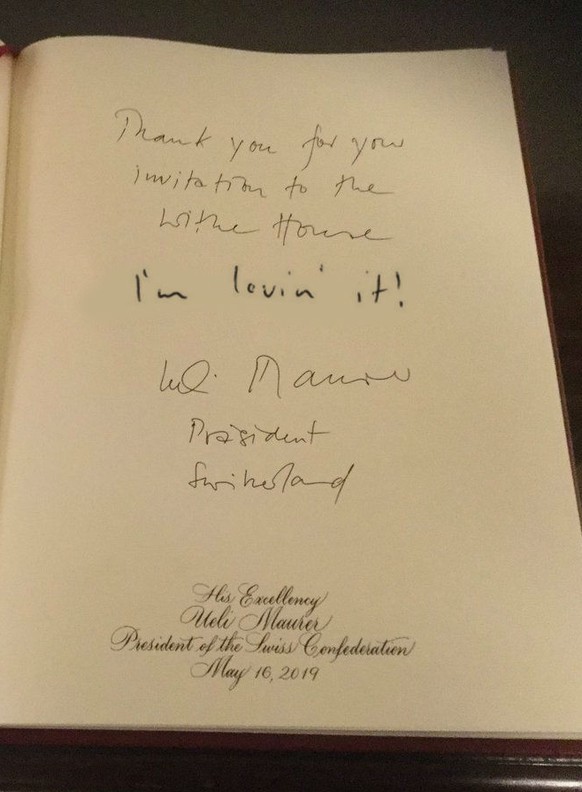 Thank you for your
invitation to the
Withe House
I'm lovin' it!
Ueli Maurer
Präsident
Switzerland
His Excellency
Ueli Maurer
President of the Swiss Confederation
May 16, 2019